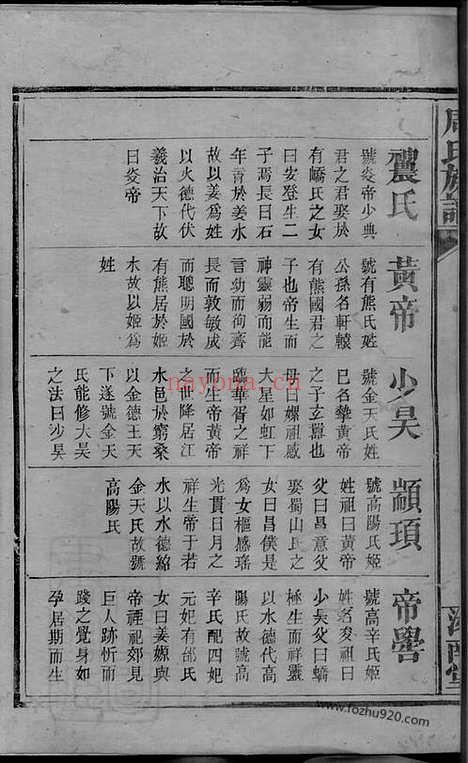 周氏族譜
農氏
號炎帝少典
君之君娶於
有嶠氏之女
曰安登生二
子焉長曰石
年育於姜水
故以姜為姓
以火德代伏
羲治天下故
曰炎帝
黃帝
號有熊氏姓
公孫名軒轅
有熊國君之
子也帝生而
神靈弱而能
言幼而徇齊
長而敦敏成
而聰明國於
有熊居於姬
水故以姬爲
姓
少昊
號金天氏姓
已名摯黃帝
之子玄囂也
母曰嫘祖感
大星如虹下
臨華胥之祥
而生帝黃帝
之世降居江
水邑於窮桑
以金德王天
下遂號金天
氏能修大昊
之法曰少昊
顓頊
號高陽氏姬
姓祖曰黃帝
父曰昌意父
娶蜀山氏之
女曰昌僕是
爲女樞感瑤
光貫日月之
祥生帝于若
水以水德紹
金天氏故號
高陽氏
帝嚳
號高辛氏姬
姓名夋祖曰
少昊父曰蟜
極生而祥靈
以木德代高
陽氏故號高
辛氏配四妃
元妃有邰氏
女曰姜嫄與
帝禋祀郊見
巨人跡忻而
踐之覺身如
孕居期而生
nayona.cn
www.fozhu920.com